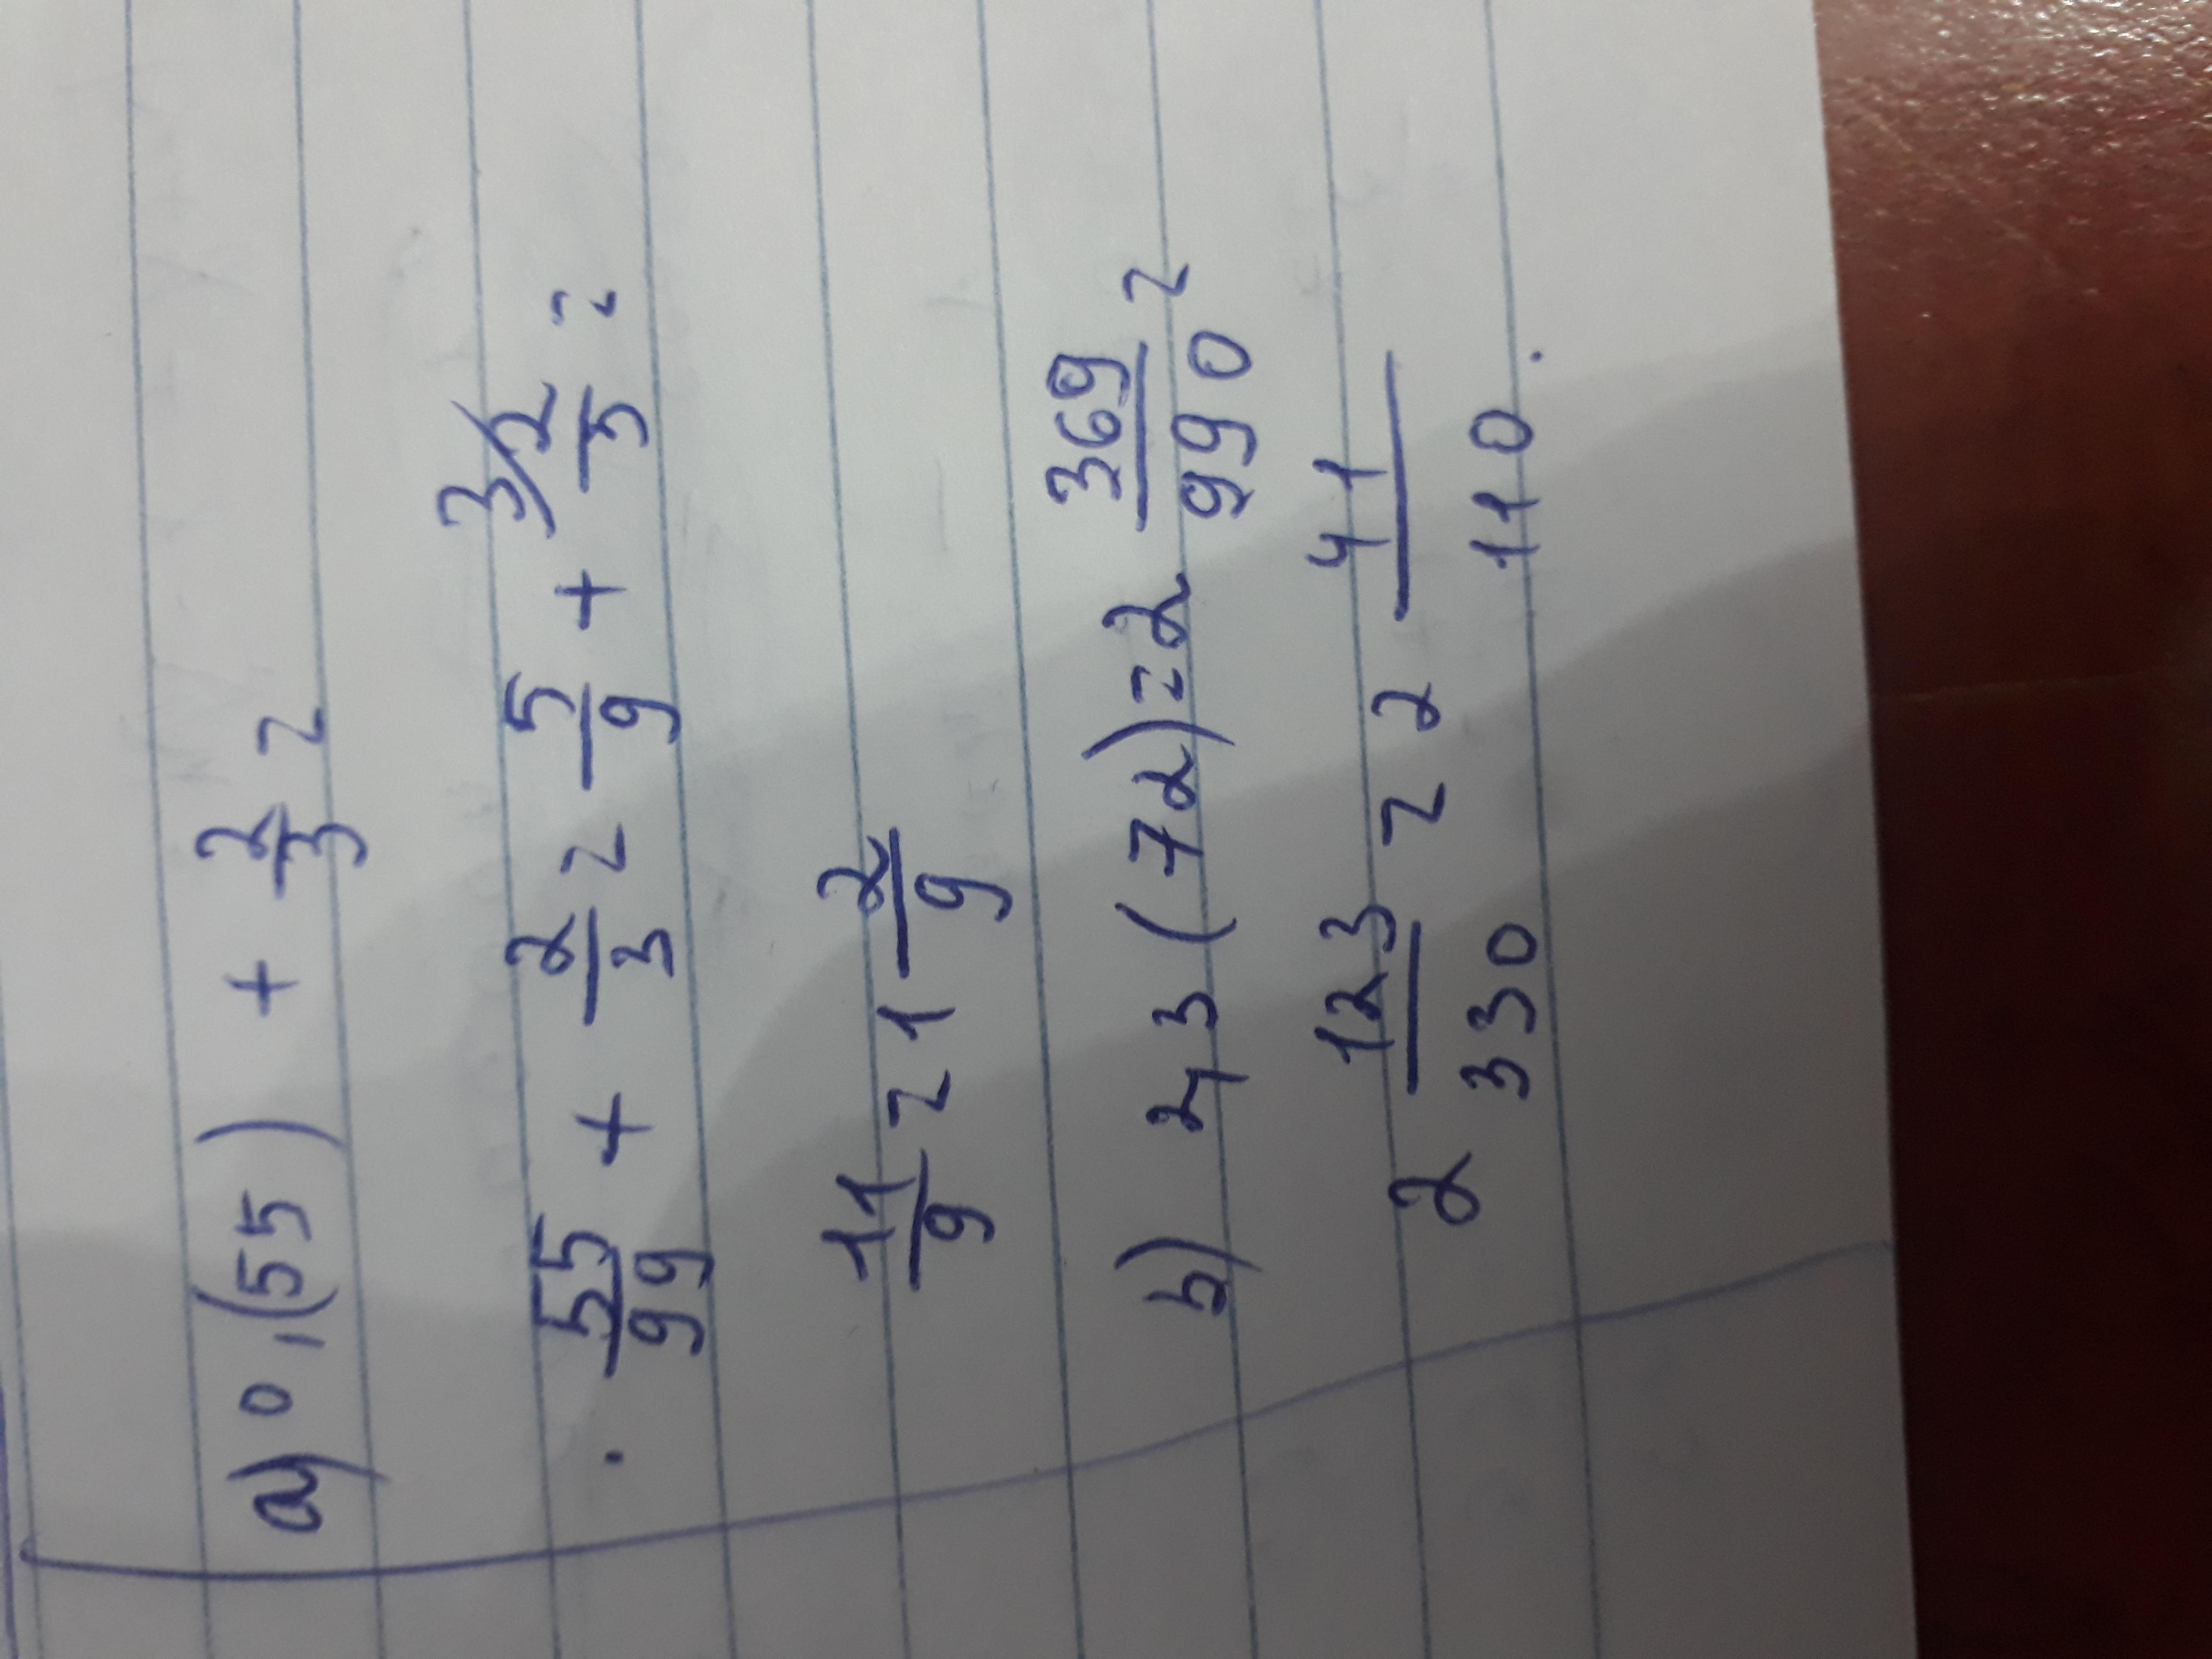 a) 0,(55) + 2/3 =
. 55/99 + 2/3 = 5/9 + 3/ 2/3 =
11/9 = 1 2/9
b) 2,3(72) = 2 369/990 =
2 123/330 = 2 41/110.